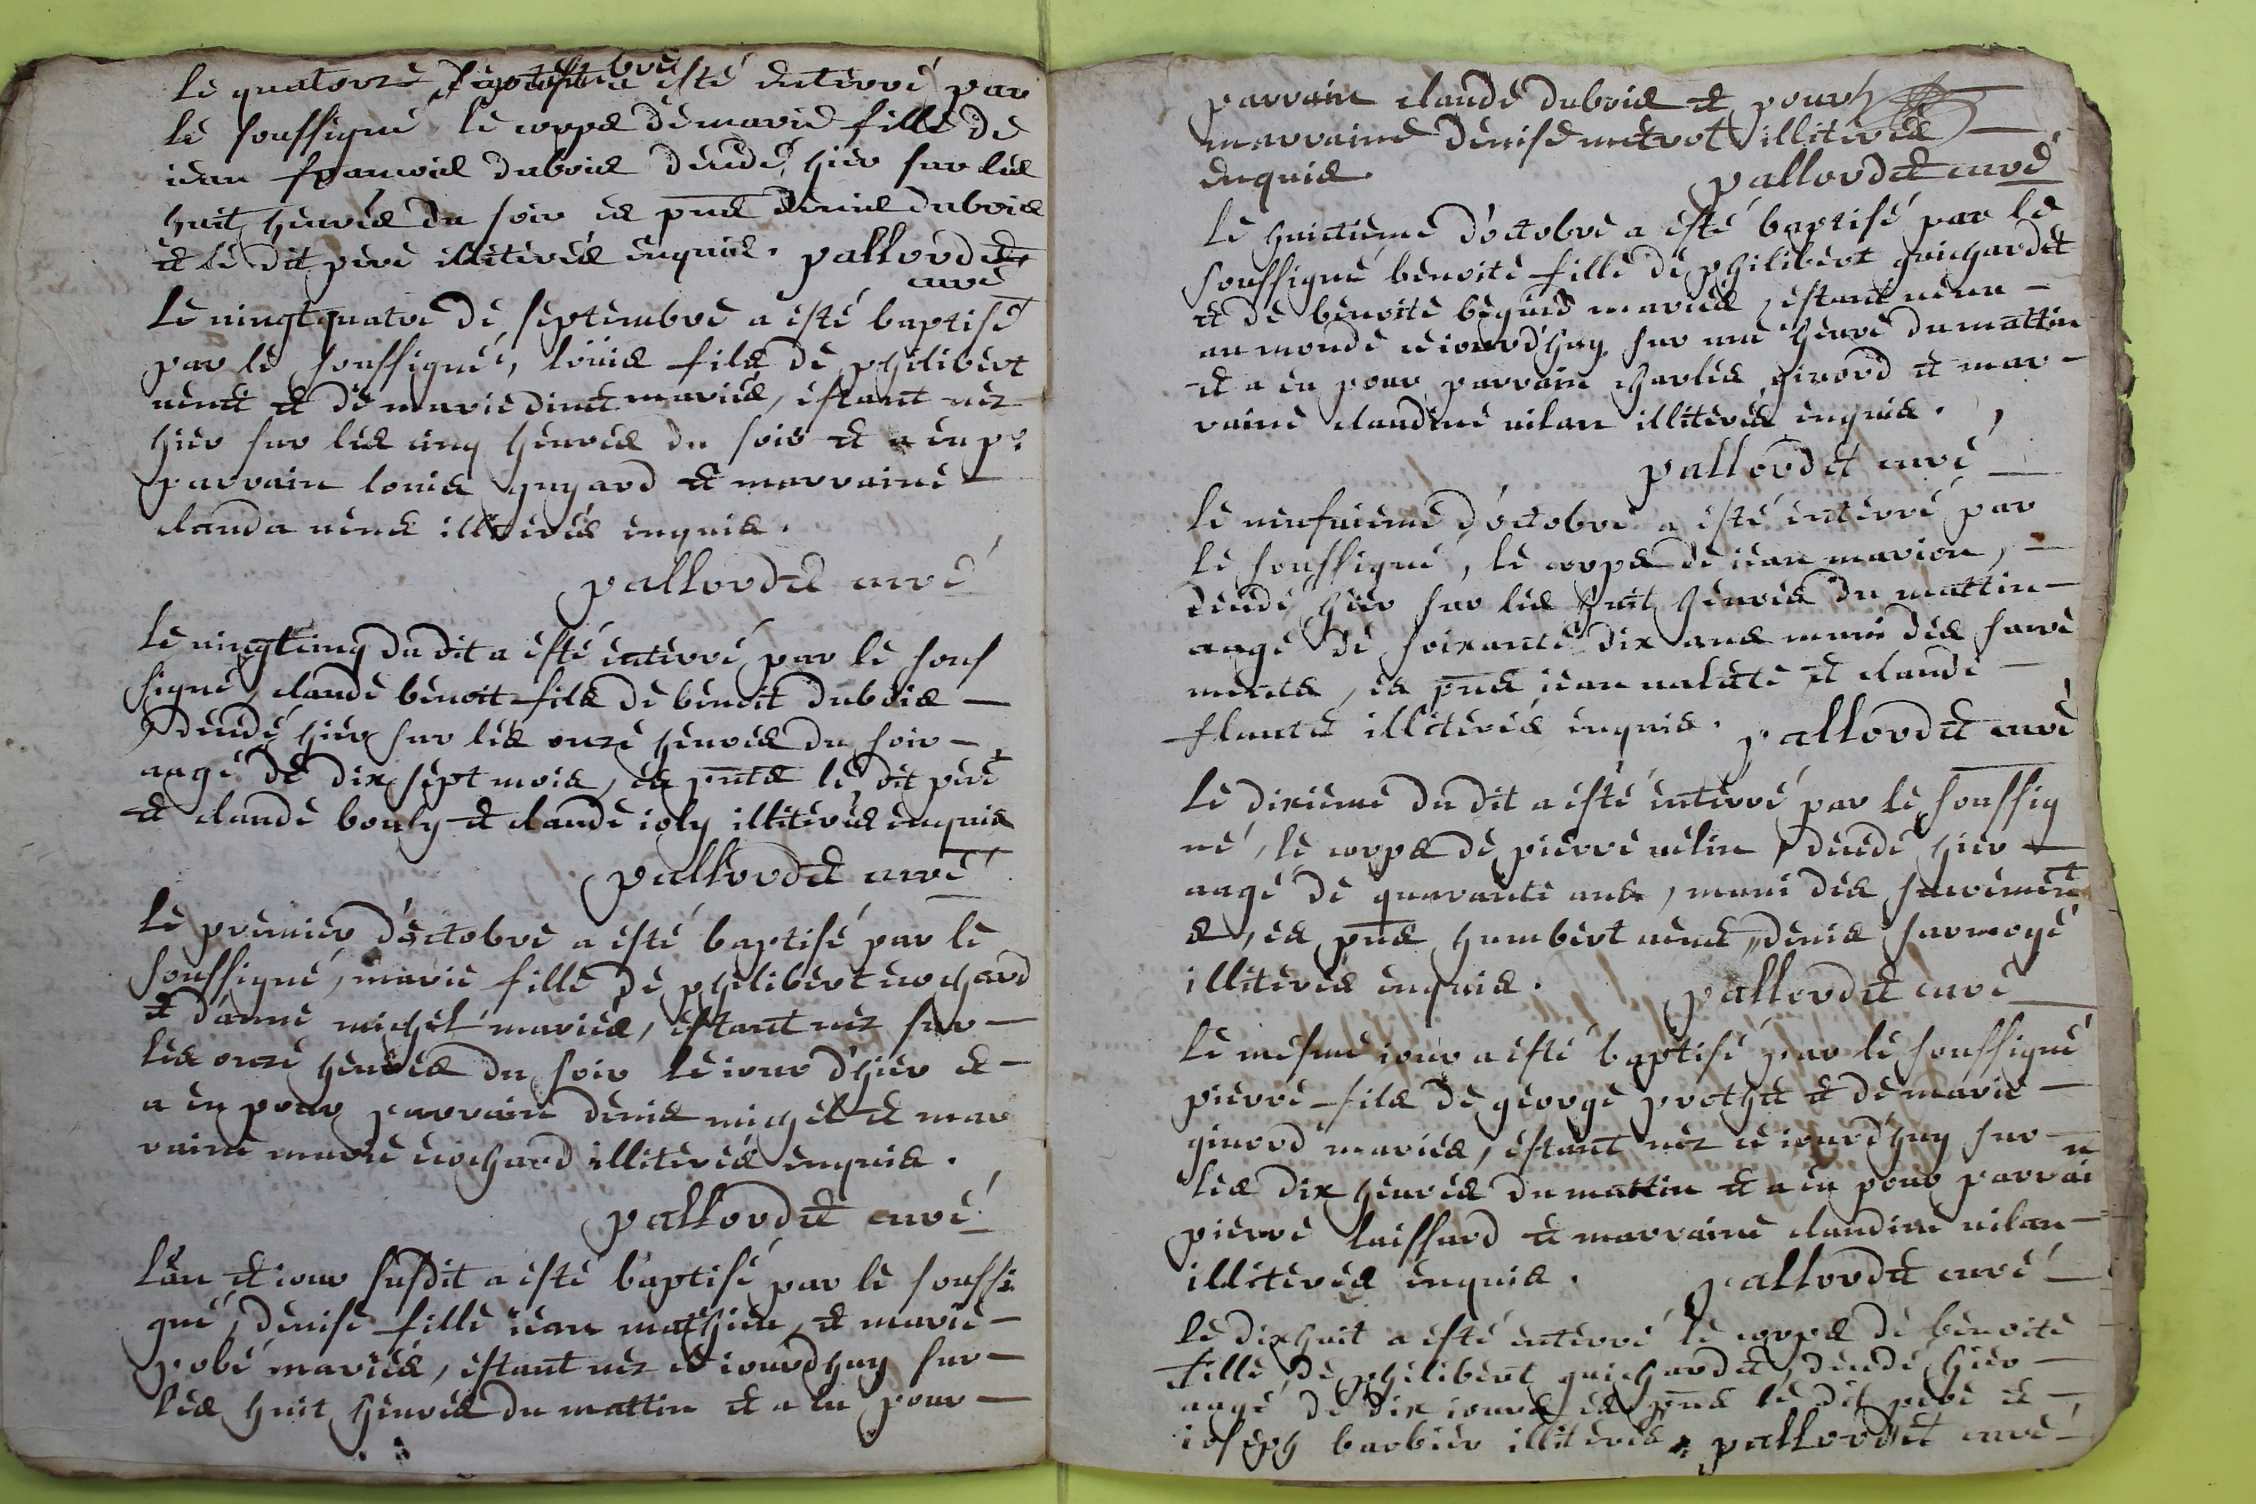 le quatorze septembre esté enterré par
le soussigné le corps de marie fille de
iean francois dubois decedé hier sur les
huit heures du soir es pnts denis dubois
et le dit pere illiterés enquis. pallordet
curé
le vingt quatre de septembre a esté baptisé
par le soussigné, loüis fils de philibert
et de marie mariés, estant nez
hier sur les cinq heures du soir et a eu pr
parrain louis guyard et marraine
clauda illiterés enquis.
pallordet curé
le vingtcinq du dit a esté enterré par le sous
signé, claude benoit fils de benoit dubois
decedé hier sur les onze heures du soir
aagé de dix sept mois, es pnts le dit pere
et claude bouly et claude ioly illiterés enquis
pallordet curé
le premier d'octobre a esté baptisé par le
soussigné, marie fille de philibert cochard
et d'anne michel mariés, estant nez sur
les onze heures du soir le iour d'hier et
a eu pour parrain denis michel et mar
raine marie cochard illiterés enquis.
pallordet curé
l'an et iour susdit a esté baptisé par le soussi
gné, denise fille iean mathieu et marie
pobé mariés, estant nez ce iourdhuy sur
les huit heures du mattin et a eu pour
parrain claude dubois et pour
marraine denise metrot illiterés
enquis.
pallordet curé
le huictieme d'octobre a esté baptisé par le
soussigné benoite fille de philibert guichardet
et de benoite beguid mariés, estant venu
au monde ce iourd'huy sur une heure du mattin
et a eu pour parrain charles givord et mar
raine claudine vilan illiterés enquis.
pallordet curé
le neufvieme d'octobre a esté enterré par
le soussigné, le corps de iean marion,
decedé hier sur les huit heures du mattin
aagé de soixante dix ans muni des sacre
ments, es pnts iean valete et claude
flautet illiterés enquis. pallordet curé
le dixieme du dit a esté enterré par le soussig
né, le corps de pierre velin decedé hier
aagé de quarante ans, muni des sacrement
s, es pnts humbert denis
illiterés enquis. pallordet curé
le mesme iour a esté baptisé par le soussigné
pierre fils de george prothet et de marie
givord mariés, estant nez ce iourd'huy sur
les dix heures du mattin et a eu pour parrain
pierre laissard et marraine claudine vilan
illiterés enquis. pallordet curé
le dixhuit a esté enterré le corps de benoite
fille de philibert guichardet, decedé hier
aagé de dix iours es pnts le dit pere et
ioseph barbier illiterés. pallordet curé